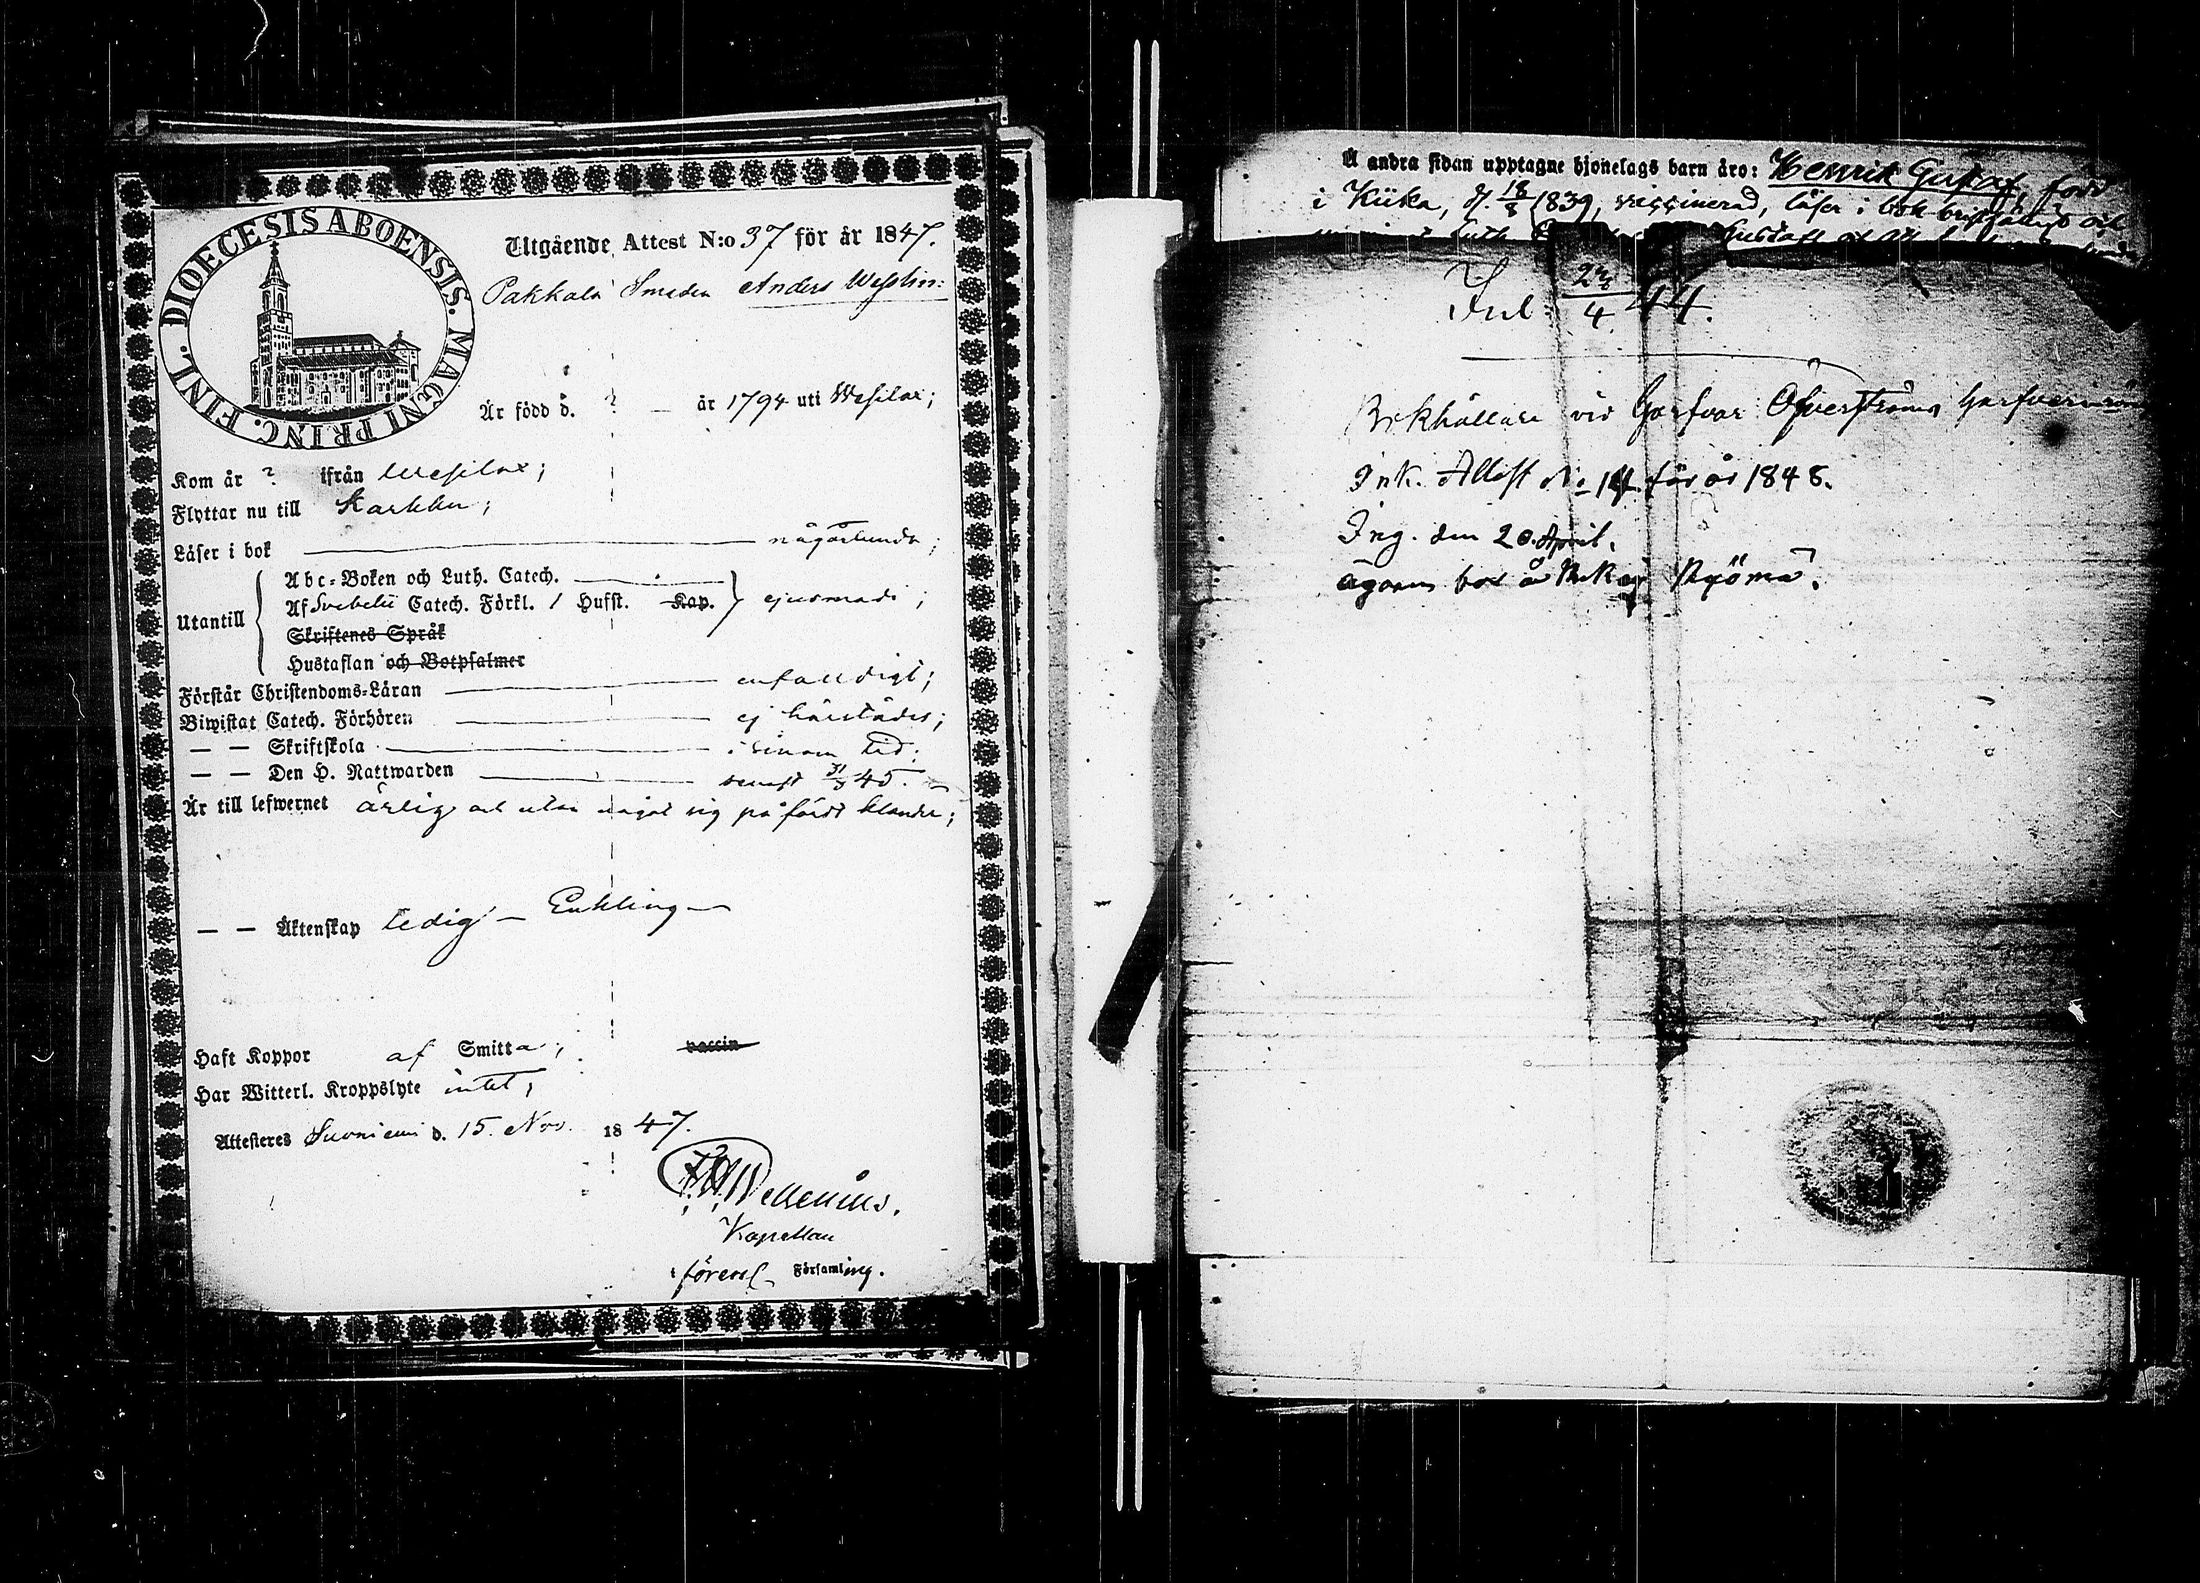 DIOECESIS ABOENSIS. MAGNI PRINC. FINL.
Utgående Attest N:o 37 för år 1847.
Pakkala Smeden Anders Wesslin:
Är född d. ? — år 1794 uti Wesilax;
Kom år ? ifrån Wesilax;
Flyttar nu till Karkku;
Läser i bok någorlunda;
Utantill
Abc-Boken och Luth. Catech.
Af Svebelii Catech. Förkl. / Husst. Kap. ejusmodi;
Skriftenes Språk
Hustaflan och Botpsalmer
Förstår Christendoms-Läran enfaldigt;
Biwistat Catech. Förhören ej härstädes;
— — Skriftskola i sinom tid;
— — Den H. Nattwarden senast 31/8 45.
Är till lefwernet ärlig och utan något sig påfördt klander;
— — Äktenskap ledig — Enkling —
Haft Koppor af Smitta; vaccin
Har Witterl. Kroppslyte intet;
Attesteres Suoniemi d. 15. Nov. 1847.
Kapellan
i förena Församling.
Å andra sidan upptagne hjonelags barn äro: Henrik Gustaf, född
i Kiika, d. 18/8 1839, vaccinerad, läser i bok och
Luth. Gustafs
44.
Bokhållare vid Garfvar Öfverströms
Ink. Attest No 14 för år 1848.
Ing. den 20. April.